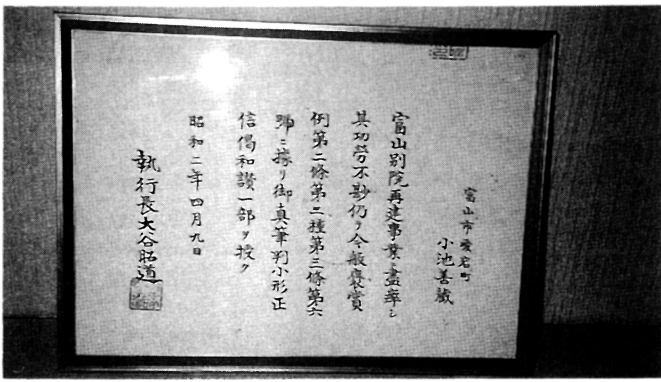 富山市愛宕町
小池善蔵
富山別院再建事業ニ盡瘁シ
其功労不尠仍テ今般褒賞
例第二條第二種第三條第六
號ニ據リ御真筆判小形正
信偈和讃一部ヲ授ク
昭和二年四月九日
執行長大谷昭道